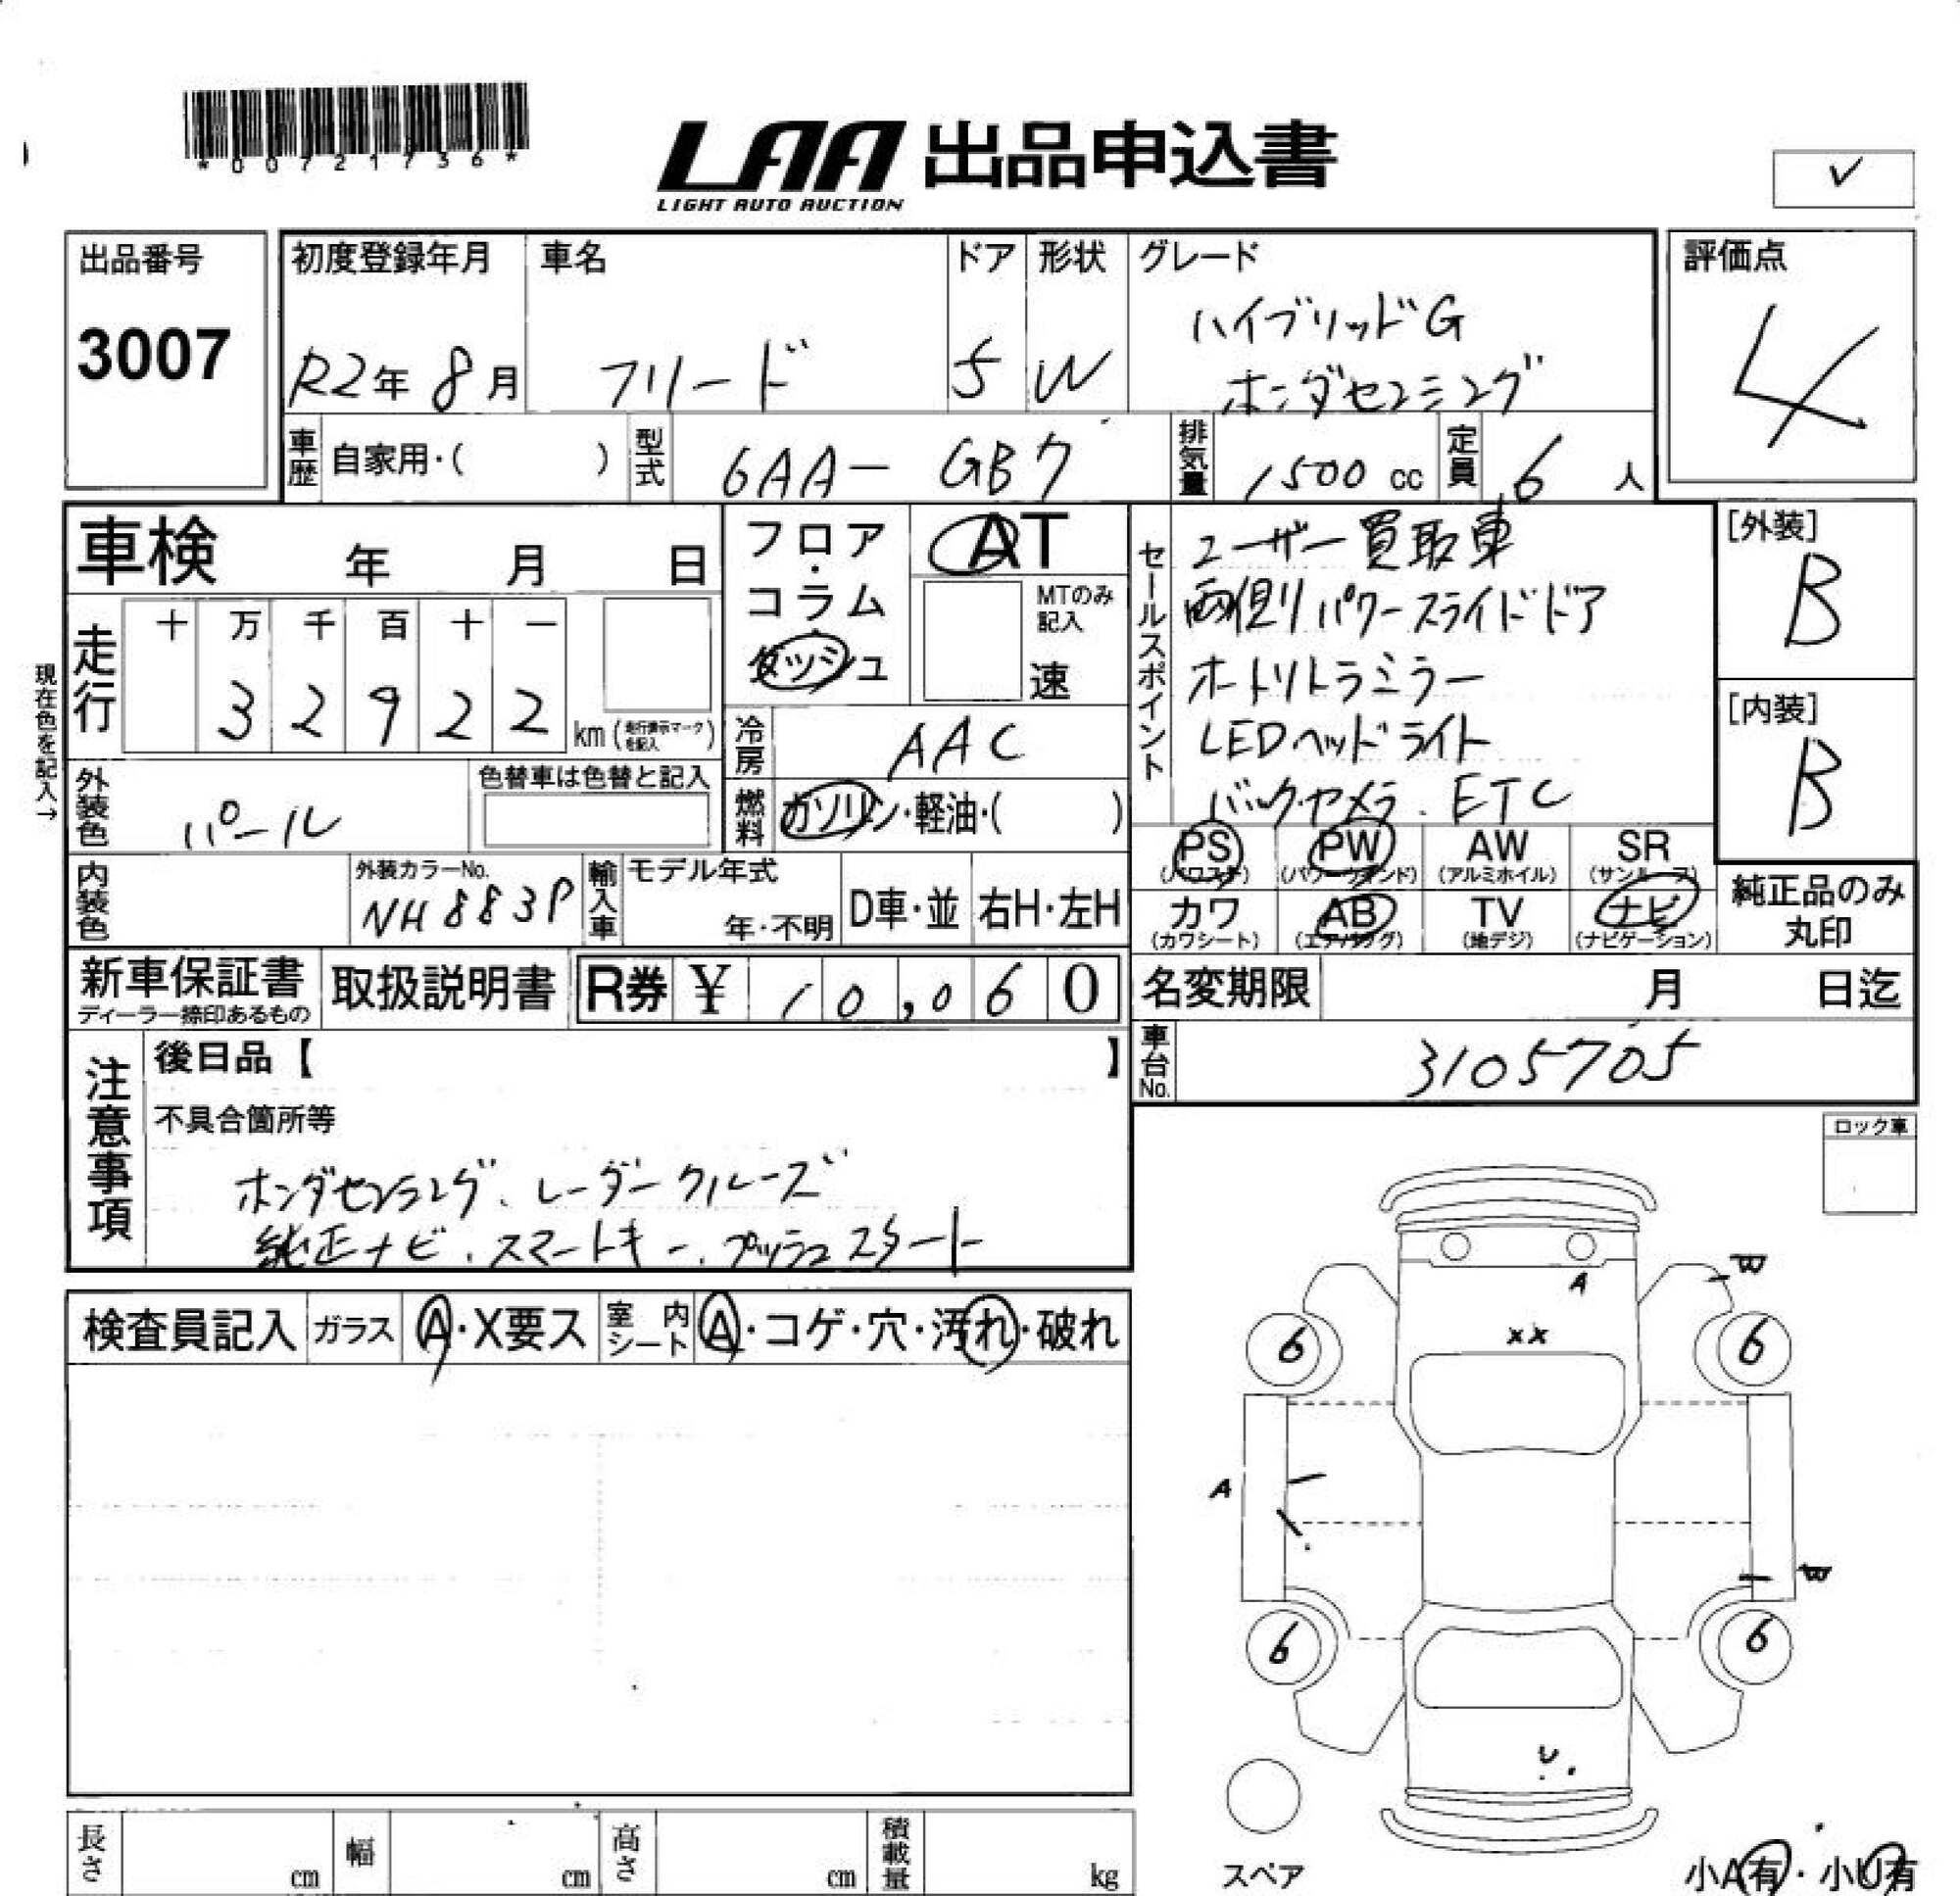 *00721736*
LAA 出品申込書
LIGHT AUTO AUCTION
出品番号
3007
初度登録年月
R2年 8月
車名
フリード
ドア
5
形状
W
グレード
ハイブリッドG
ホンダセンシング
評価点
4
車歴 自家用・( )
型式 6AA- GB7
排気量 1500 cc
定員 6 人
車検 年 月 日
フロア・コラム・ダッシュ
AT
MTのみ記入
速
セールスポイント
ユーザー買取車
両側パワースライドドア
オートリトラミラー
LEDヘッドライト
バックカメラ. ETC
[外装]
B
[内装]
B
現在色を記入→
走行 十 万 千 百 十 一
3 2 9 2 2 km (走行表示マークを記入)
冷房 AAC
燃料 ガソリン・軽油・( )
外装色 パール
色替車は色替と記入
内装色
外装カラーNo.
NH883P
輸入車
モデル年式
年・不明
D車・並
右H・左H
PS (パワステ)
PW (パワーウインド)
AW (アルミホイル)
SR (サンルーフ)
カワ (カワシート)
AB (エアバッグ)
TV (地デジ)
ナビ (ナビゲーション)
純正品のみ
丸印
新車保証書
ディーラー捺印あるもの
取扱説明書
R券 ¥ 10,060
名変期限 月 日迄
車台No. 3105705
注意事項
後日品【 】
不具合箇所等
ホンダセンシング. レーダークルーズ
純正ナビ. スマートキー. プッシュスタート
ロック車
検査員記入
ガラス A・X要ス
室内シート A・コゲ・穴・汚れ・破れ
W
A
XX
6
6
A
W
6
6
U
スペア
長さ cm
幅 cm
高さ cm
積載量 kg
小A有・小U有